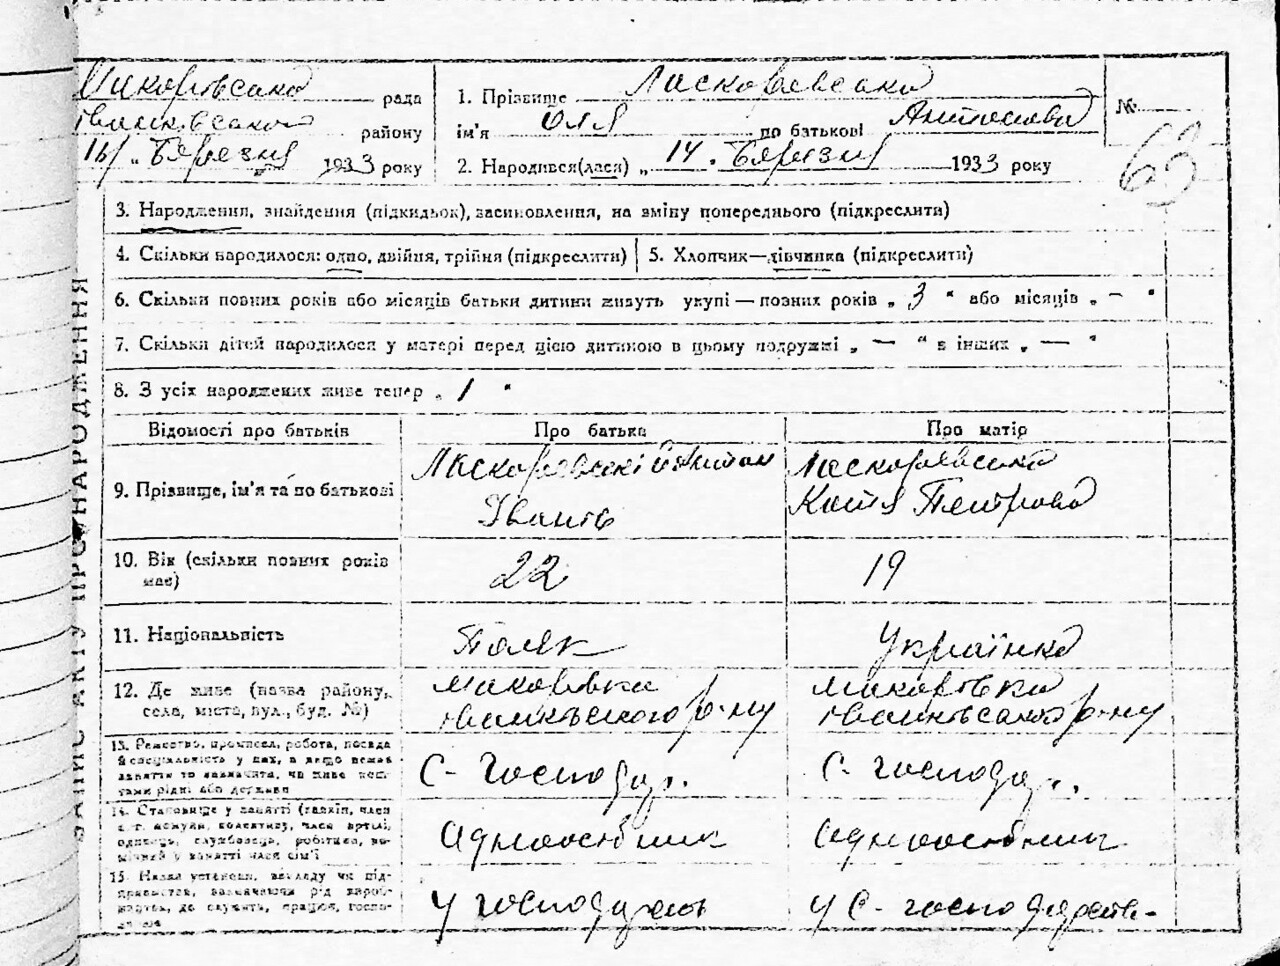 Макарівська рада
Іванківського району
14 „ Березня 1933 року
1. Прізвище Ласкаревська
ім'я Оля по батькові Антонова
2. Народився(лася) „ 14 „ Березня 1933 року
№
63
3. Народження, знайдення (підкидьок), засиновлення, на зміну попереднього (підкреслити)
4. Скільки народилося: одно, двійня, трійня (підкреслити)
5. Хлопчик—дівчинка (підкреслити)
6. Скільки повних років або місяців батьки дитини живуть укупі — повних років „ 3 “ або місяців „ — “
7. Скільки дітей народилося у матері перед цією дитиною в цьому подружжі „ — “ в інших „ — “
8. З усіх народжених живе тепер „ 1 “
Відомості про батьків
Про батька
Про матір
9. Прізвище, ім'я та по батькові
Антон
Іванів
Ласкаревська
Катя Петрова
10. Вік (скільки повних років
має)
22
19
11. Національність
Поляк
Українка
12. Де живе (назва району,
села, міста, вул., буд. №)
Макарівка
Іванківського р-ну
Макарівка
Іванківського р-ну
13. Ремество, промисел, робота, посада
й спеціяльність у них, а якщо немає
заняття то зазначити, чи живе кош-
тами рідні або держави
С- господар.
С. господар.
14. Становище у занятті (хазяїн, член
с.-г. комуни, колективу, член артілі,
одинець, службовець, робітник, по-
мічний у занятті член сім'ї
Одноосібник
Одноосібник
15. Назва установи, закладу чи під-
приємства, зазначаючи рід вироб-
ництва, де служить, працює, госпо-
дарює
У
У С- господарств-
ЗАПИС АКТУ ПРО НАРОДЖЕННЯ